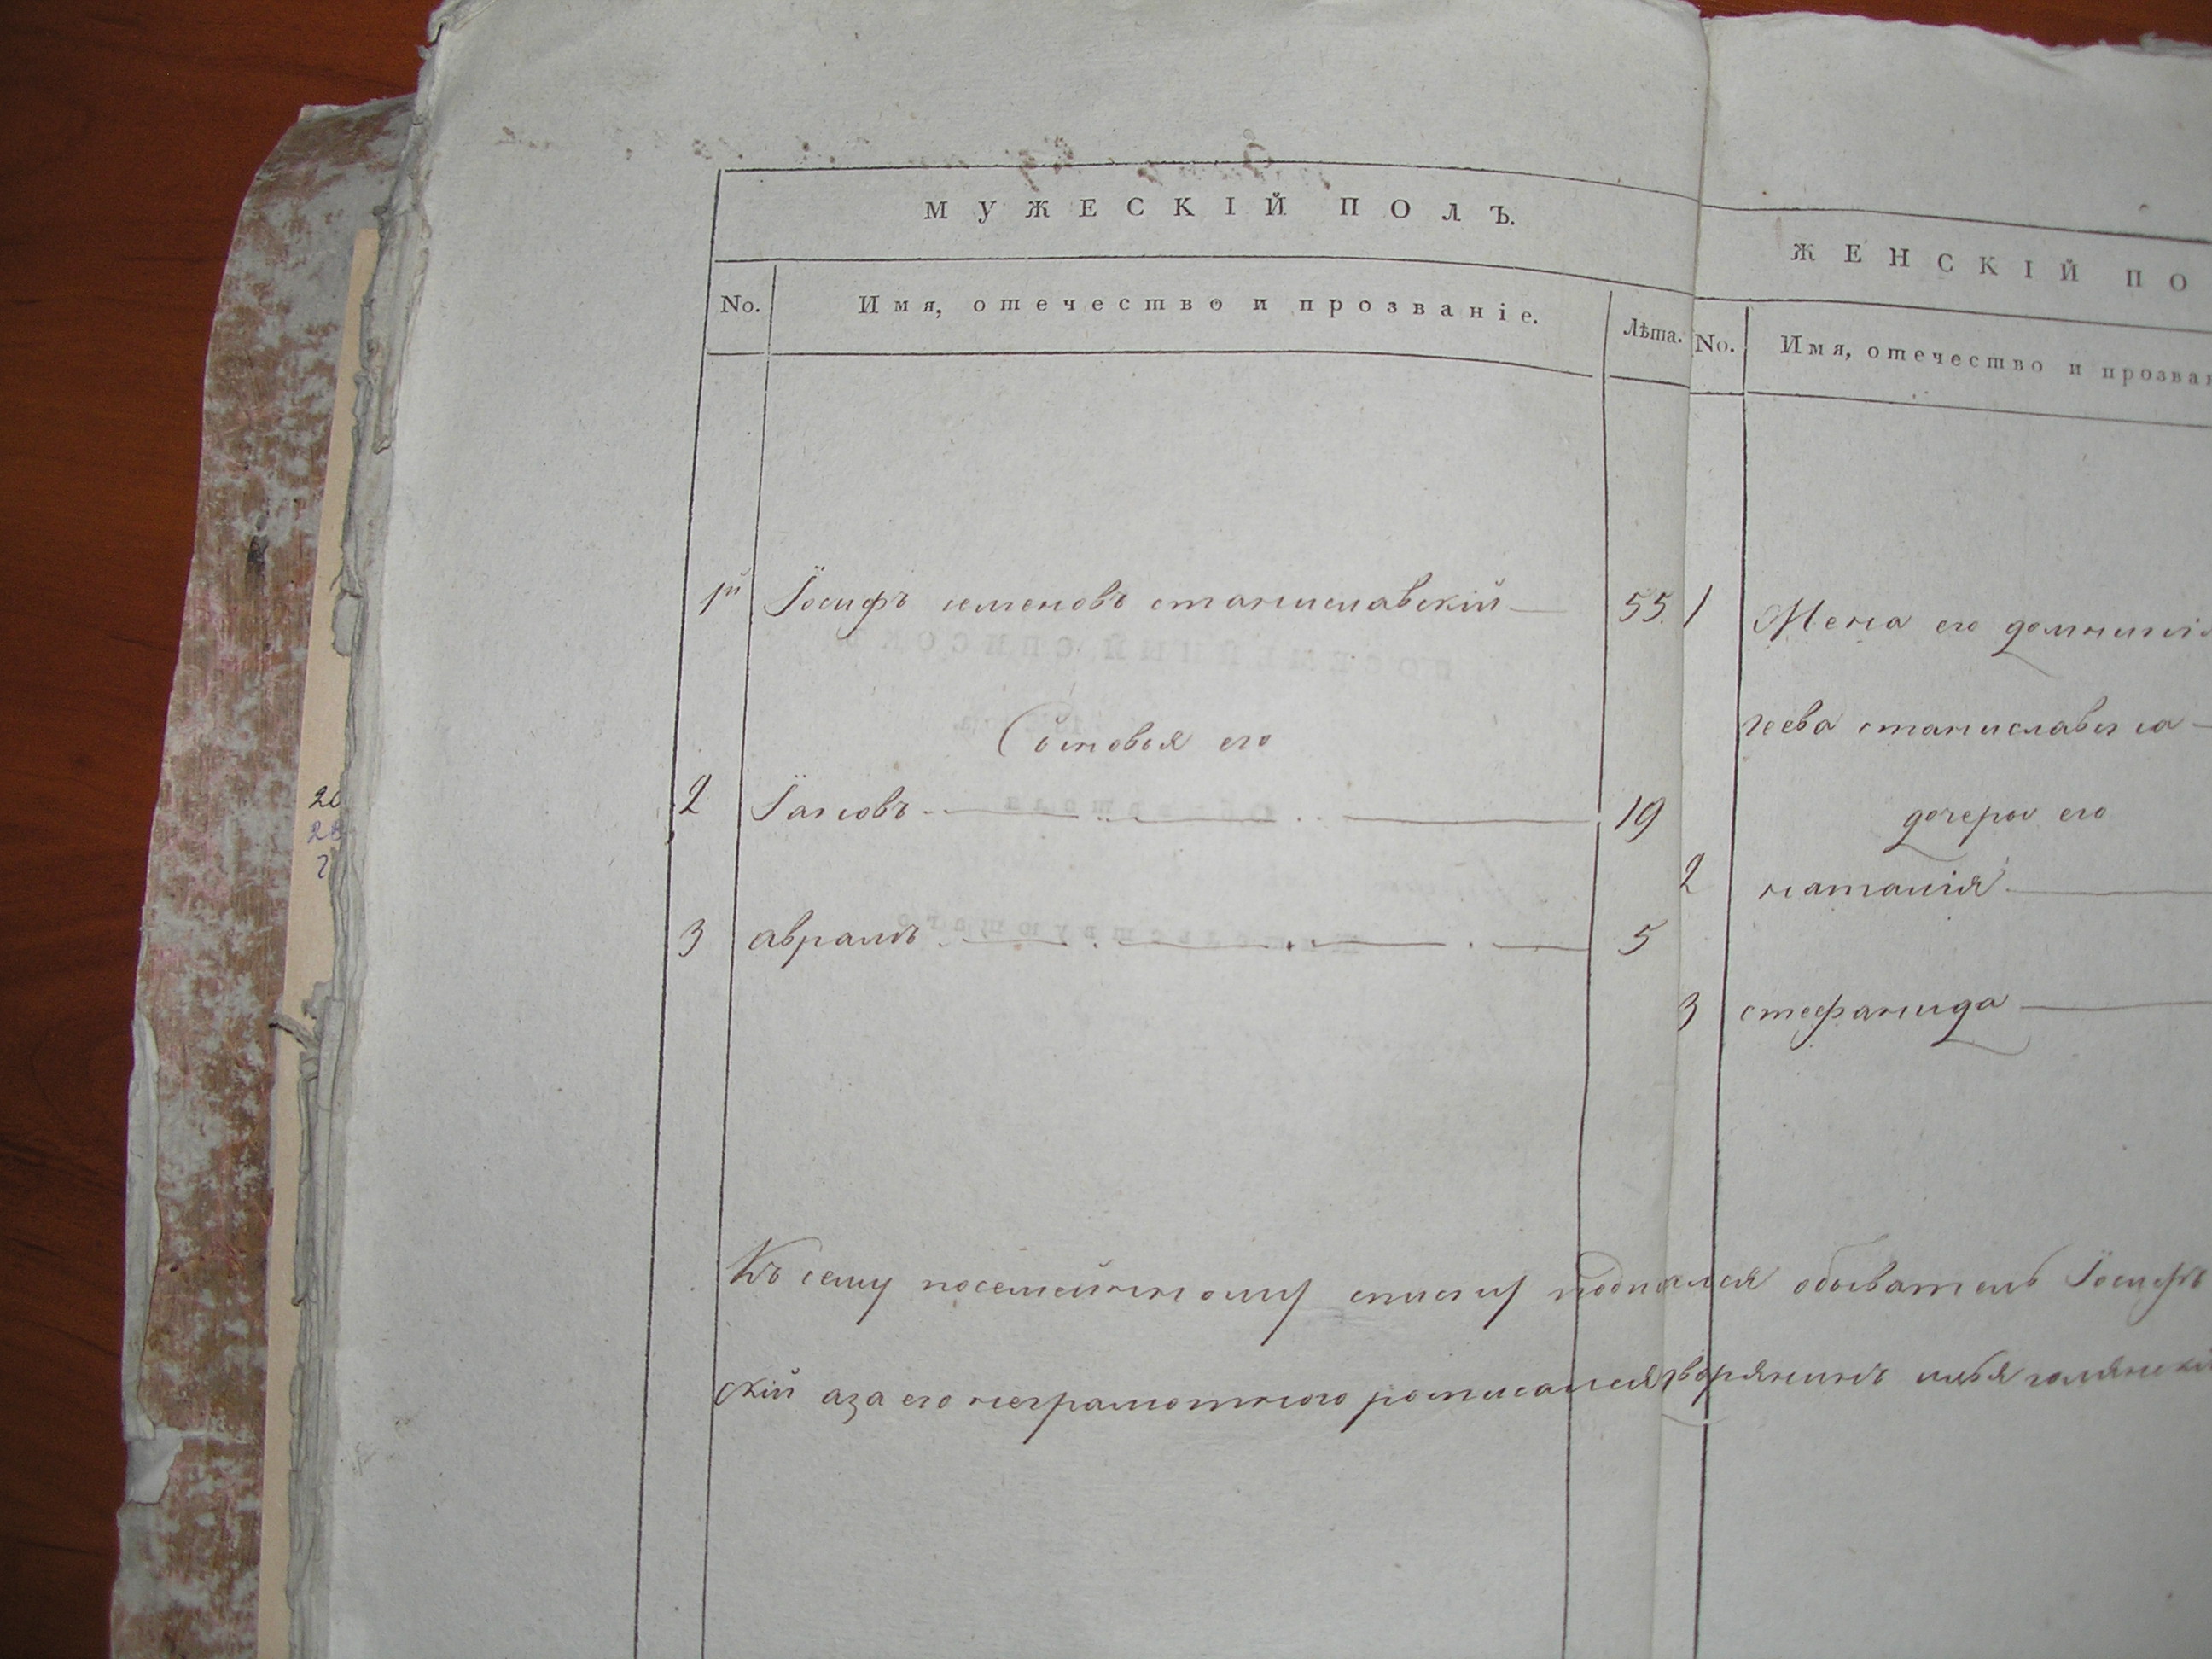 МУЖЕСКІЙ ПОЛЪ.
No. Имя, отечество и прозваніе. Лѣта.
1й Іосифъ семеновъ станиславскій 55.
Сыновья его
2 Іаковъ 19
3 аврамъ 5
ЖЕНСКІЙ ПО
No. Имя, отечество и прозван
1 Жена его домникія
геева станиславска
дочеры его
2 наталія
3 стефанида
Къ сему посемейнному списку подписался обыватель Іосифъ
скій аза его неграмотного росписался дворянинъ илья
20
28